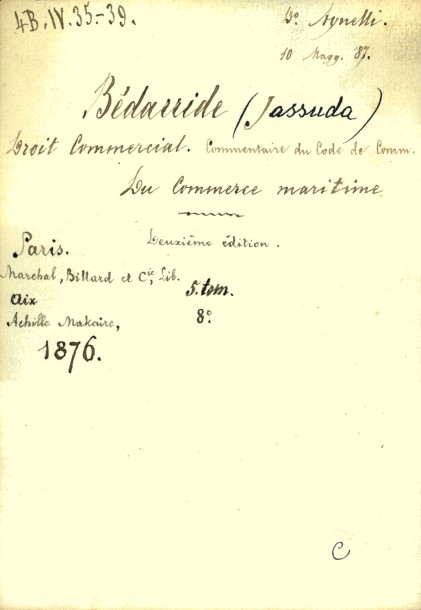 4B.IV.35-39.
Do Agnelli.
10 Magg. '87.
Bédarride (Jassuda)
Droit Commercial. Commentaire du Code de Comm.
Du Commerce maritime
Deuxième édition.
Paris.
Marchal, Billard et Cie, Lib.
Aix
5. tom.
Achille Makaire,
8°
1876.
C